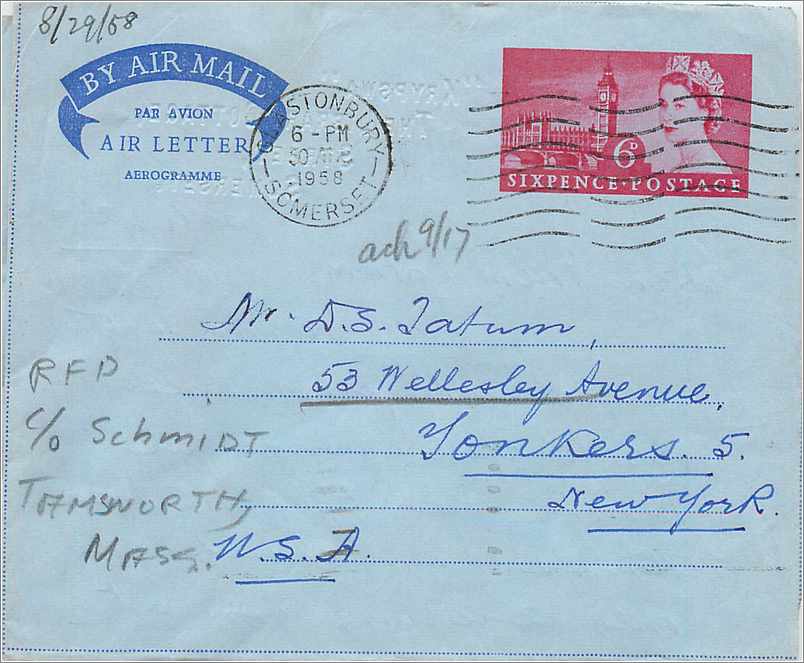 8/29/58
BY AIR MAIL
PAR AVION
AIR LETTER
AEROGRAMME
GLASTONBURY
6 - PM
30
1958
SOMERSET
6D
SIXPENCE · POSTAGE
ack 9/17
Mr. D. S. Tatum,
53 Wellesley Avenue,
Yonkers. 5.
New York.
U. S. A.
RFD
c/o Schmidt
TAMSWORTH,
MASS.